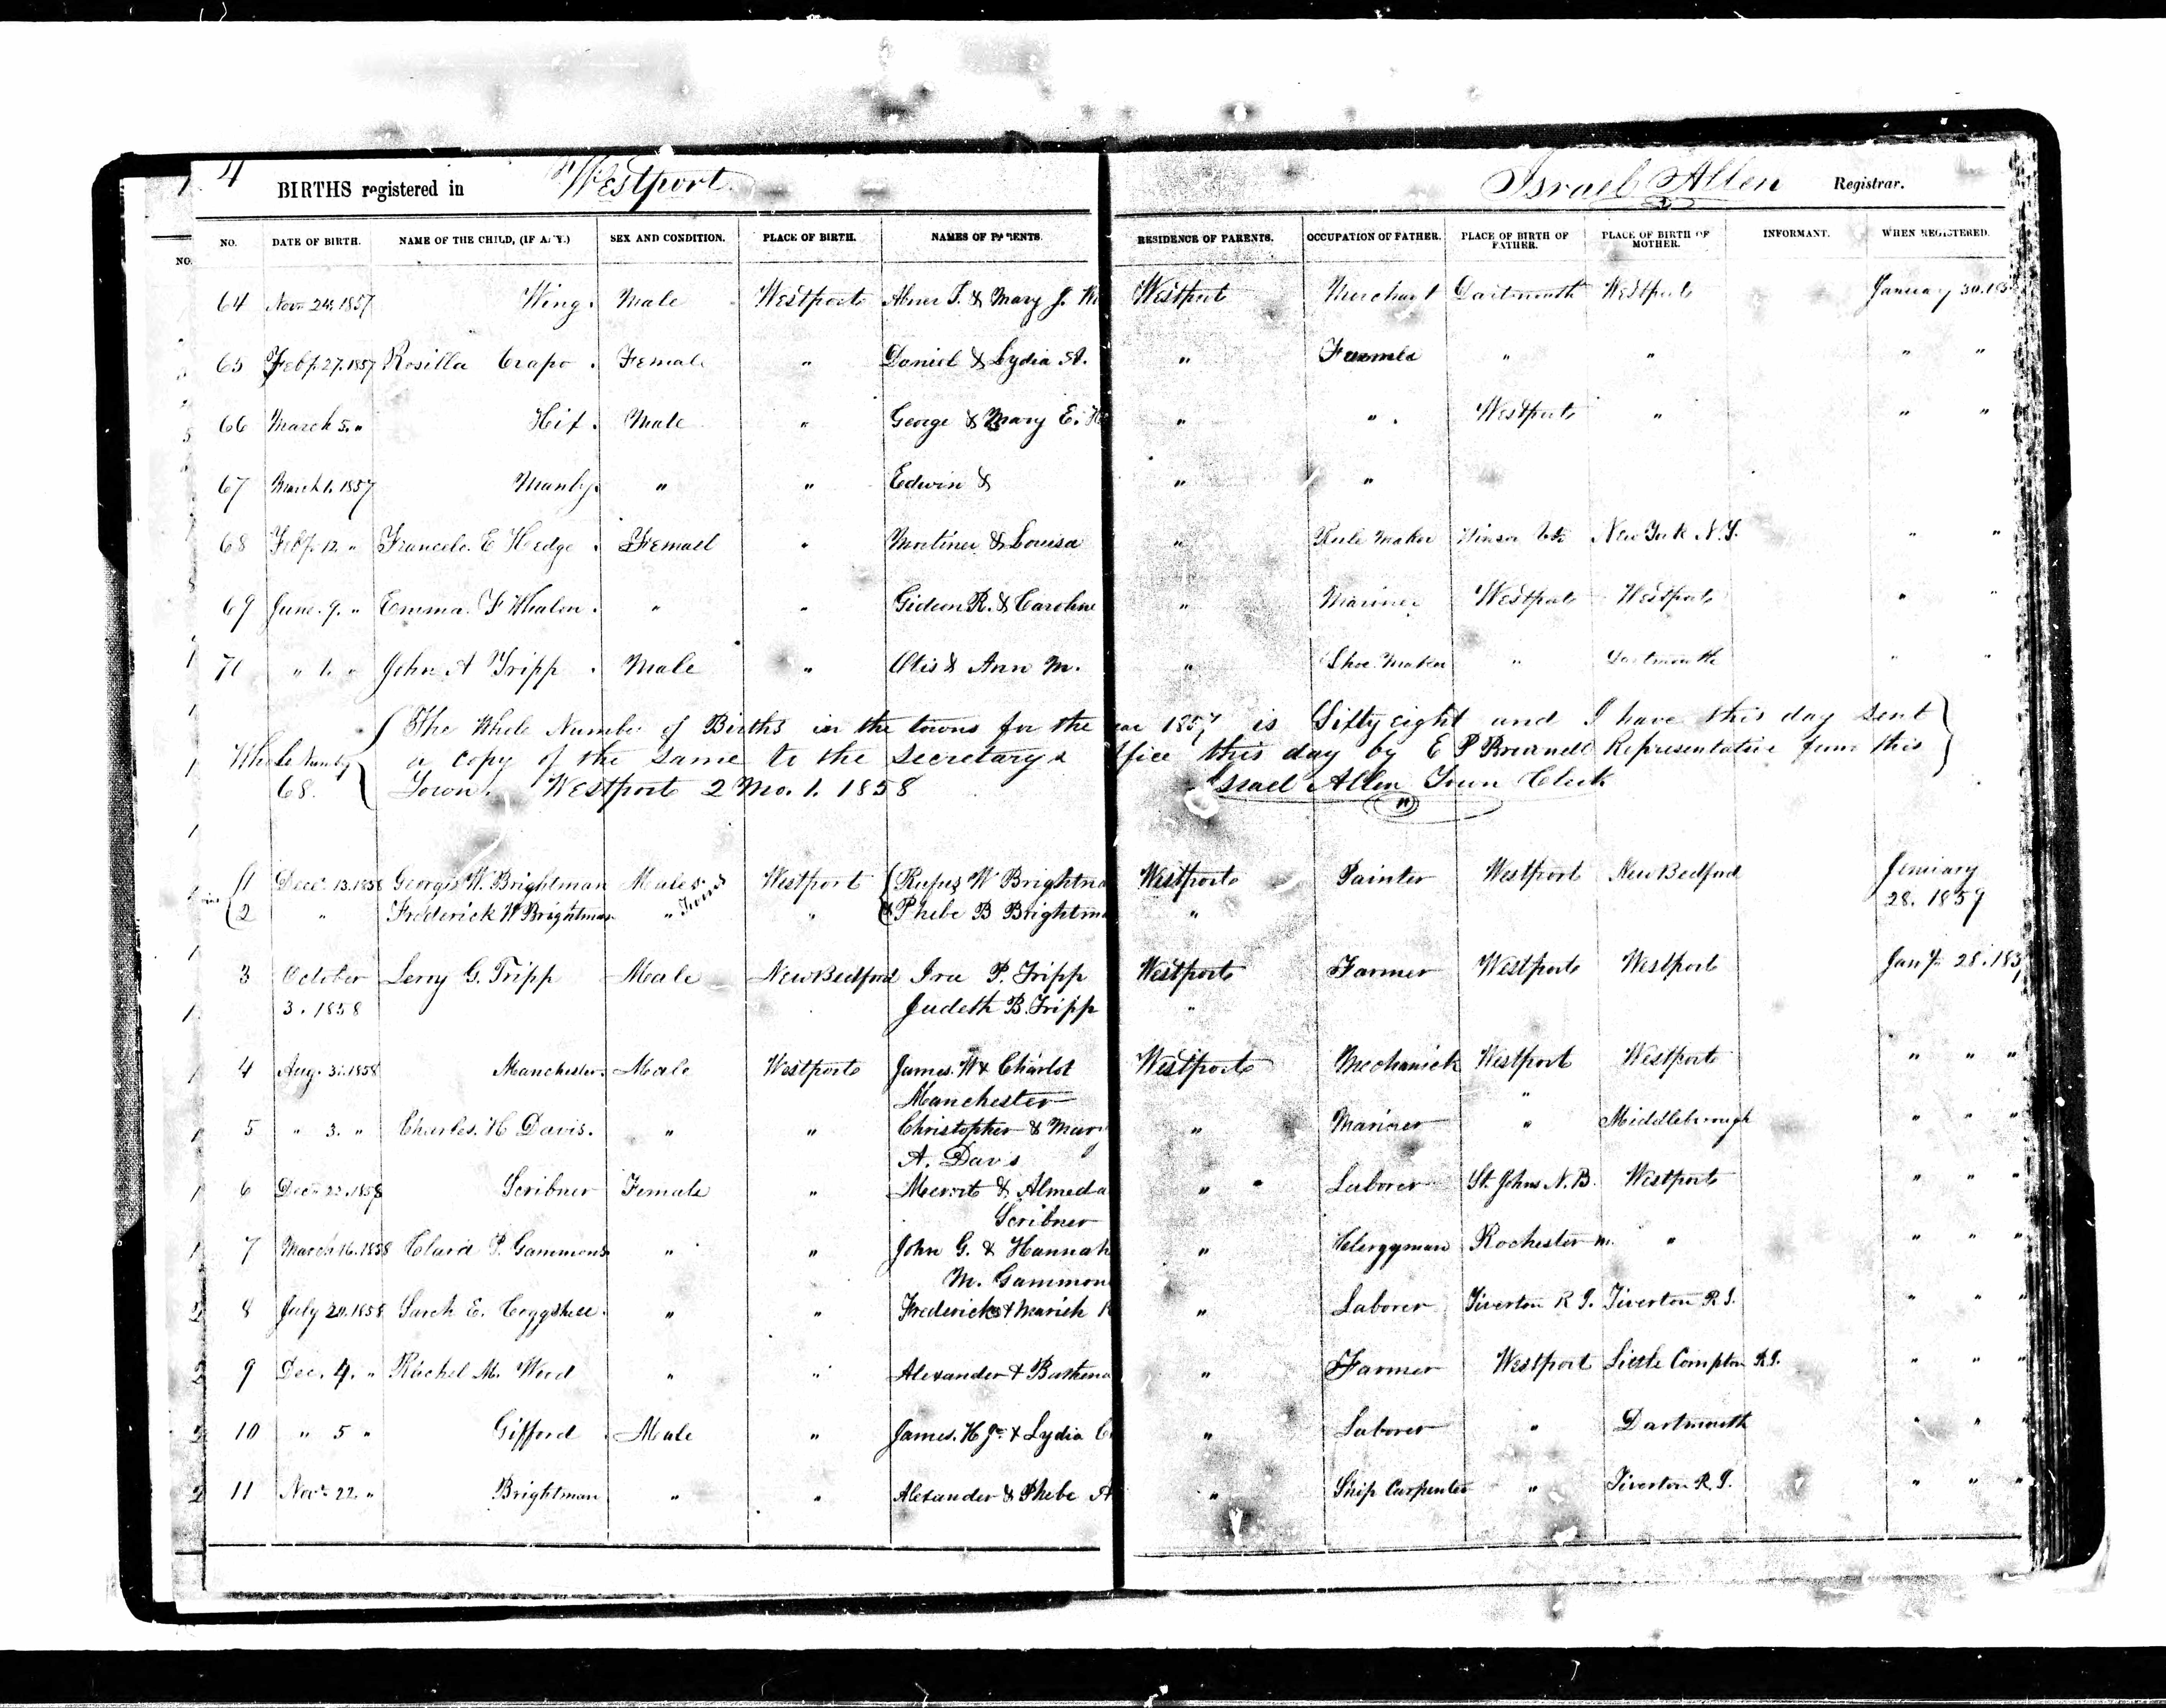 4 BIRTHS registered in Westport. Israel Allen Registrar.
NO. DATE OF BIRTH. NAME OF THE CHILD, (IF ANY.) SEX AND CONDITION. PLACE OF BIRTH. NAMES OF PARENTS. RESIDENCE OF PARENTS. OCCUPATION OF FATHER. PLACE OF BIRTH OF FATHER. PLACE OF BIRTH OF MOTHER. INFORMANT. WHEN REGISTERED.
NO.
64 Nov. 24. 1857 Wing. Male Westport Abner T. & Mary J. Westport Merchant Dartmouth Westport January 30. 185
65 Feby. 27. 1857 Rosilla Crapo. Female " Daniel & Lydia A. " Farmer " " " "
66 March 5. " Hix. Male " George & Mary E. " " Westport " " "
67 March 1. 1857 Manly. " " Edwin & " "
68 Feby. 12. " E Hedge. Female " Mortimer & Louisa " Rule Maker New York N.Y. " "
69 June. 9. " Emma. F Whalon. " " Gideon R. & Caroline " Mariner Westport Westport " "
70 " 1. " John A Tripp. Male " Otis & Ann M. " Shoe Maker " Dartmouth " "
The Whole Number of Births in the towns for the ear 1857 is Sixty eight and I have this day sent
Whole Numb a copy of the same to the Secretarys ffice this day by E P Brownell Representative from this
68. Town. Westport 2 Mo. 1. 1858 Israel Allen Town Clerk
1 Dec. 13. 1858 George W. Brightman Males Twins Westport Rufus W Brightma Westport Painter Westport New Bedford January
2 " Frederick W Brightman " " & Phebe B Brightm " 28. 1859
3 October Leroy G. Tripp Male New Bedford Ira P. Tripp Westport Farmer Westport Westport Jany. 28. 185
3. 1858 Judeth B. Tripp "
4 Aug. 31. 1858 Manchester. Male Westport James. W & Charlot Westport Mechanick Westport Westport " " "
Manchester "
5 " 3. " Charles. H Davis. " " Christopher & Mary " Mariner " Middleborough " " "
A. Davis
6 Dec. 22. 1858 Scribner Female " Merrit & Almeda " Laborer St. Johns N.B. Westport " " "
Scribner
7 March 16. 1858 Clara P. Gammons " " John G. & Hannah " Clergyman Rochester M. " " " "
M. Gammon
8 July 20. 1858 Sarah E. Coggshell. " " Frederick & Mariah " Laborer Tiverton R I. Tiverton R.I. " " "
9 Dec. 4. " Rachel M. Wood " " Alexander & Bathena " Farmer Westport Little Compton R.I. " " "
10 " 5 " Gifford. Male " James. H Jr. & Lydia " Laborer " Dartmouth " " "
11 Nov. 22. " Brightman " " Alexander & Phebe A " Ship Carpenter " Tiverton R.I. " " "